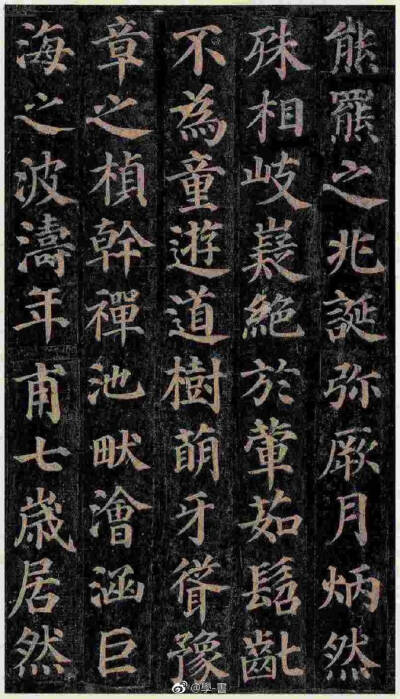 熊羆之兆誕弥厥月炳然
殊相岐嶷絶於葷茹髫齓
不為童遊道樹萌牙聳豫
章之楨幹禪池畎澮涵巨
海之波濤年甫七歳居然
@學-書